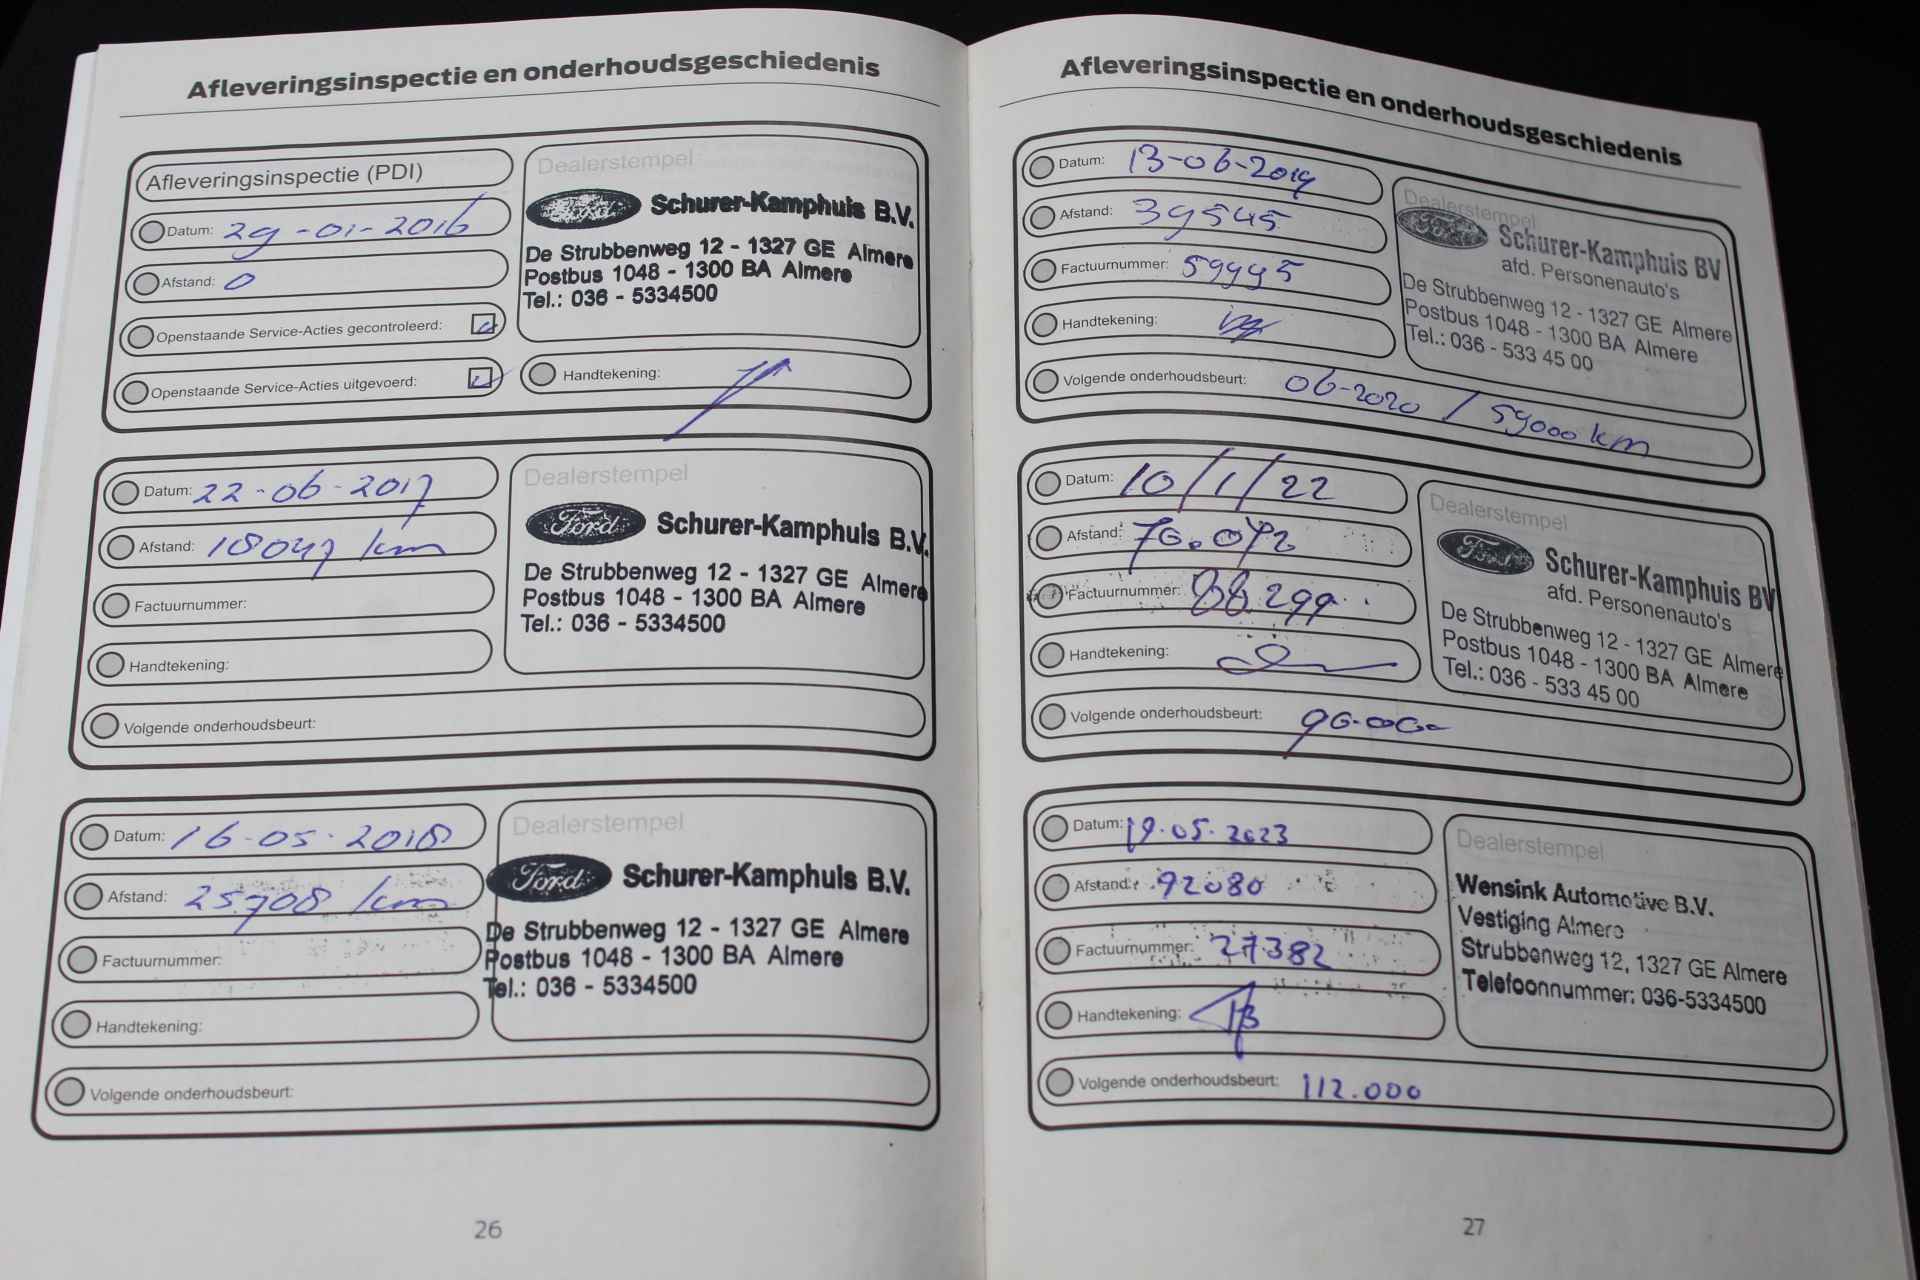 Afleveringsinspectie en onderhoudsgeschiedenis
Afleveringsinspectie (PDI)
Datum: 29-01-2016
Afstand: 0
Openstaande Service-Acties gecontroleerd:
Openstaande Service-Acties uitgevoerd:
Dealerstempel
Ford Schurer-Kamphuis B.V.
De Strubbenweg 12 - 1327 GE Almere
Postbus 1048 - 1300 BA Almere
Tel.: 036 - 5334500
Handtekening:
Datum: 22-06-2017
Afstand: 18047 km
Factuurnummer:
Handtekening:
Volgende onderhoudsbeurt:
Dealerstempel
Ford Schurer-Kamphuis B.V.
De Strubbenweg 12 - 1327 GE Almere
Postbus 1048 - 1300 BA Almere
Tel.: 036 - 5334500
Datum: 16-05-2018
Afstand: 25708 km
Factuurnummer:
Handtekening:
Volgende onderhoudsbeurt:
Dealerstempel
Ford Schurer-Kamphuis B.V.
De Strubbenweg 12 - 1327 GE Almere
Postbus 1048 - 1300 BA Almere
Tel.: 036 - 5334500
26
Afleveringsinspectie en onderhoudsgeschiedenis
Datum: 13-06-2019
Afstand: 39545
Factuurnummer: 59995
Handtekening:
Volgende onderhoudsbeurt: 06-2020 / 59000 km
Dealerstempel
Ford Schurer-Kamphuis BV
afd. Personenauto's
De Strubbenweg 12 - 1327 GE Almere
Postbus 1048 - 1300 BA Almere
Tel.: 036 - 533 45 00
Datum: 10/1/22
Afstand: 70.072
Factuurnummer: 88299
Handtekening:
Volgende onderhoudsbeurt: 90.000
Dealerstempel
Ford Schurer-Kamphuis BV
afd. Personenauto's
De Strubbenweg 12 - 1327 GE Almere
Postbus 1048 - 1300 BA Almere
Tel.: 036 - 533 45 00
Datum: 19.05.2023
Afstand: 92080
Factuurnummer: 27382
Handtekening:
Volgende onderhoudsbeurt: 112.000
Dealerstempel
Wensink Automotive B.V.
Vestiging Almere
Strubbenweg 12, 1327 GE Almere
Telefoonnummer: 036-5334500
27